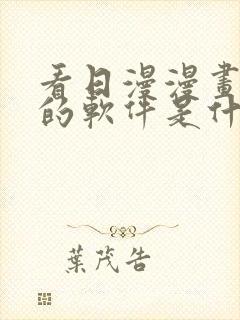 看日漫漫畫
的軟件是什
葉茂告